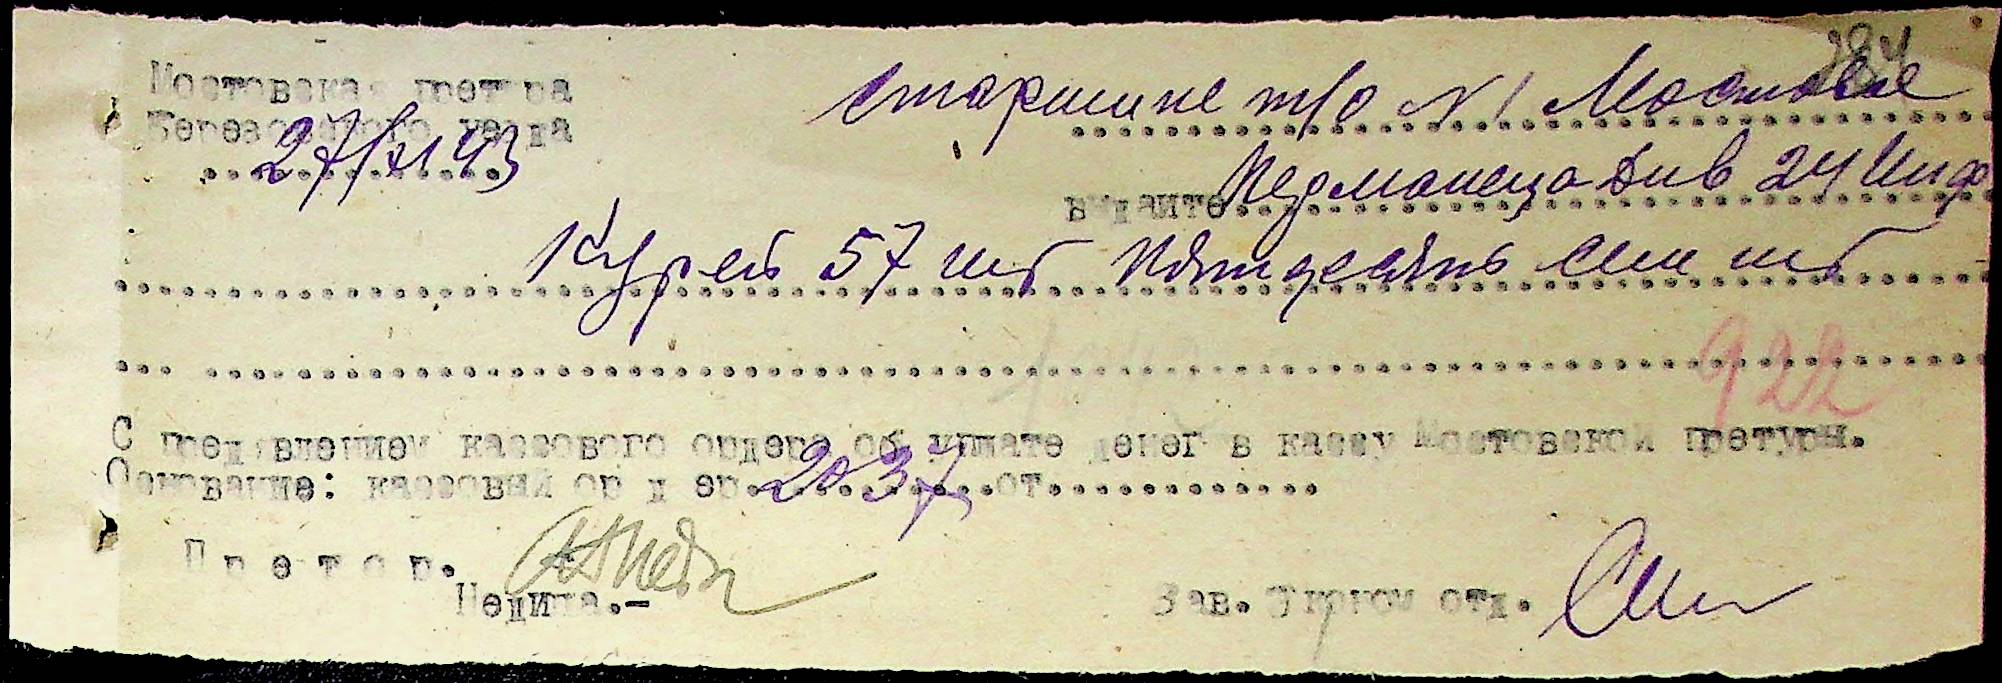 284
Мостовская претура
Березовского уезда
27/VI 43
Старшине т/о N 1 Мостовое
выдайте Перманеца Див 24 Инф
Курей 57 шт Пятдесять сем шт
922
С предявлением кассового ордера об уплате денег в кассу Мостовской претуры.
Основание: кассовый ордер 2037 от
Претор.
Недина.-
Зав. Экоком отд.